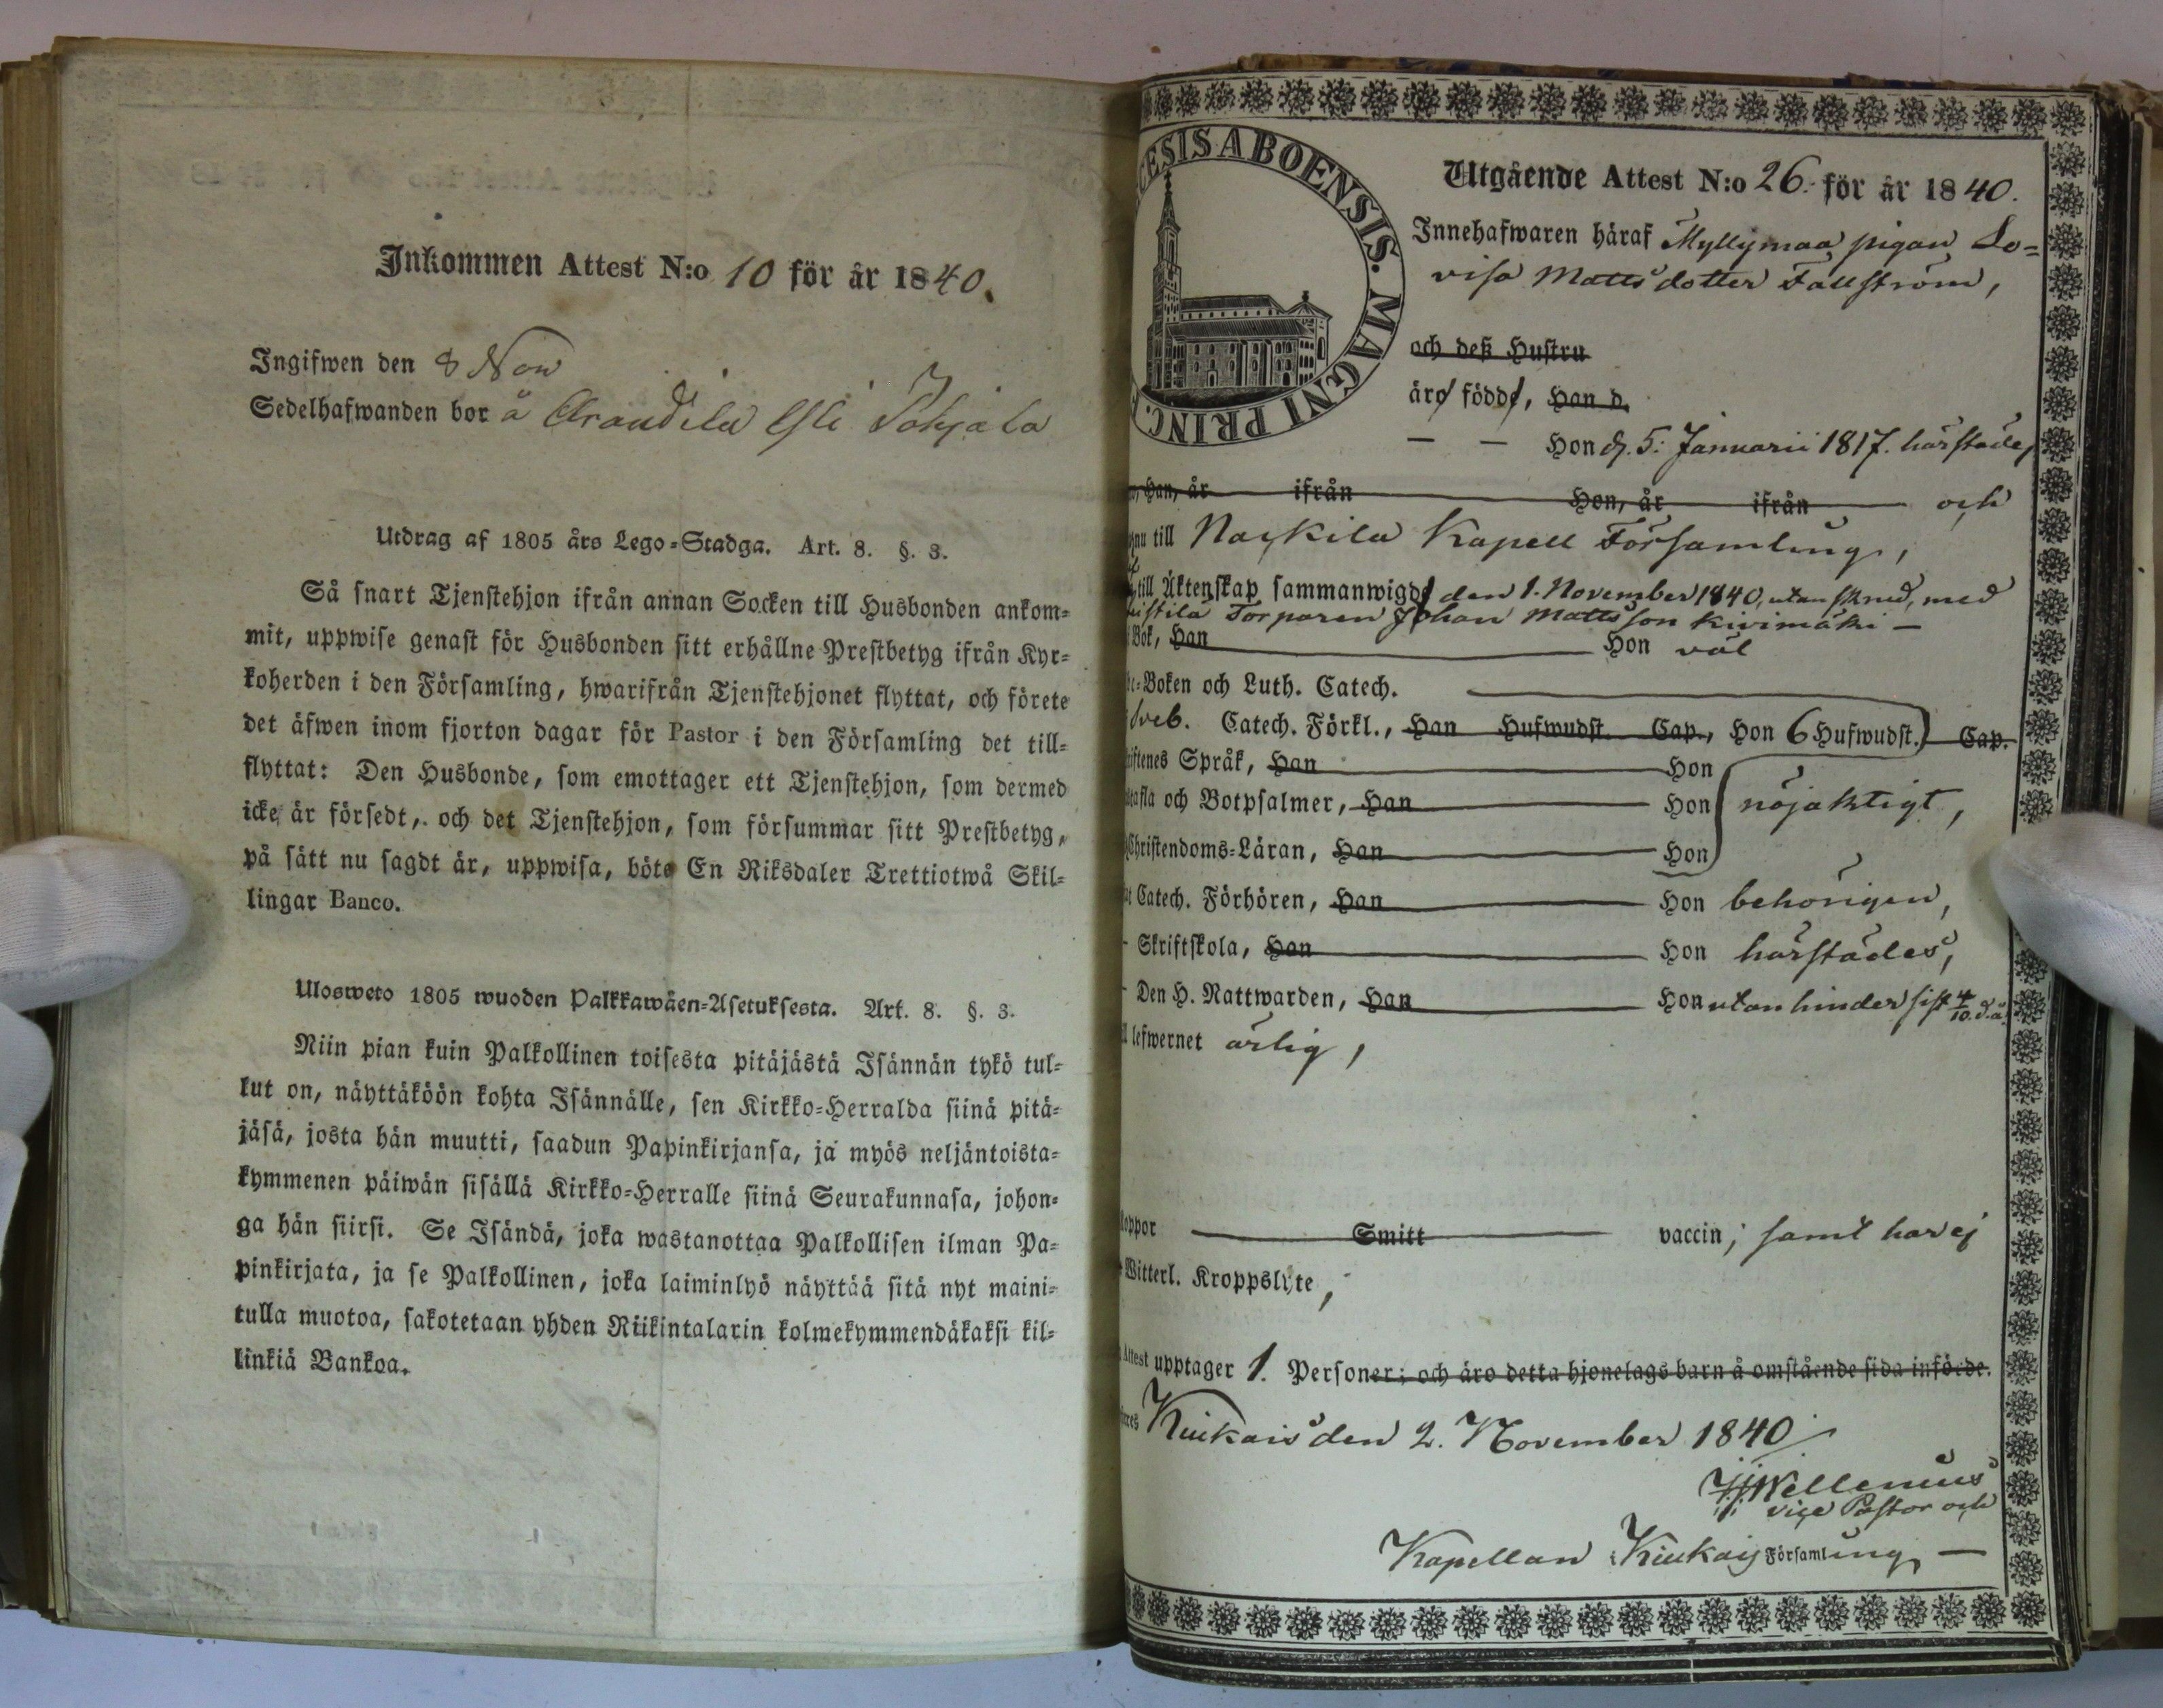 Inkommen Attest N:o 10 för år 1840.
Ingifwen den 8 Nov
Sedelhafwanden bor å
Utdrag af 1805 års Lego=Stadga. Art. 8. §. 3.
Så snart Tjenstehjon ifrån annan Socken till Husbonden ankom=
mit, uppwise genast för Husbonden sitt erhållne Prestbetyg ifrån Kyr=
koherden i den Församling, hwarifrån Tjenstehjonet flyttat, och förete
det äfwen inom fjorton dagar för Pastor i den Församling det till=
flyttat: Den Husbonde, som emottager ett Tjenstehjon, som dermed
icke är försedt, och det Tjenstehjon, som försummar sitt Prestbetyg,
på sätt nu sagdt är, uppwisa, böte En Riksdaler Trettiotwå Skil=
lingar Banco.
Ulosweto 1805 wuoden Palkkawäen=Asetuksesta. Art. 8. §. 3.
Niin pian kuin Palkollinen toisesta pitäjästä Isännän tykö tul=
lut on, näyttäköön kohta Isännälle, sen Kirkko=Herralda siinä pitä=
jäsä, josta hän muutti, saadun Papinkirjansa, ja myös neljäntoista=
kymmenen päiwän sisällä Kirkko=Herralle siinä Seurakunnasa, johon=
ga hän siirsi. Se Isändä, joka wastanottaa Palkollisen ilman Pa=
pinkirjata, ja se Palkollinen, joka laiminlyö näyttää sitä nyt maini=
tulla muotoa, sakotetaan yhden Riikintalarin kolmekymmendäkaksi kil=
linkiä Bankoa.
CESIS ABOENSIS. MAGNI PRINC.
Utgående Attest N:o 26. för år 1840.
Innehafwaren häraf Myllymaa pigan Lo=
visa Mattsdotter Fallström,
och deß Hustru
äro födde, Han d.
— — Hon d. 5. Januarii 1817. härstädes
Han, år ifrån Hon, år ifrån och
nu till Nackila Kapell Församling,
till Äktenskap sammanwigde den 1. November 1840, utan med
Torparen Johan Mattsson Kivimäki —
Bok, Han Hon väl
Boken och Luth. Catech.
Sveb. Catech. Förkl., Han Hufwudst. Cap., Hon 6 Hufwudst. Cap.
Språk, Han Hon
och Botpsalmer, Han Hon nöjaktigt,
Christendoms=Läran, Han Hon
Catech. Förhören, Han Hon behörigen,
Skriftskola, Han Hon härstädes,
Den H. Nattwarden, Han Hon utan hinder sist 4/10 d.å.
lefwernet ärlig,
Smitt vaccin; samt har ej
Witterl. Kroppslyte,
Attest upptager 1. Personer; och äro detta hjonelags barn å omstående sida införde.
Kiukais den 2. November 1840
Wellenius
vice Pastor och
Kapellan i Kiukais Församling —